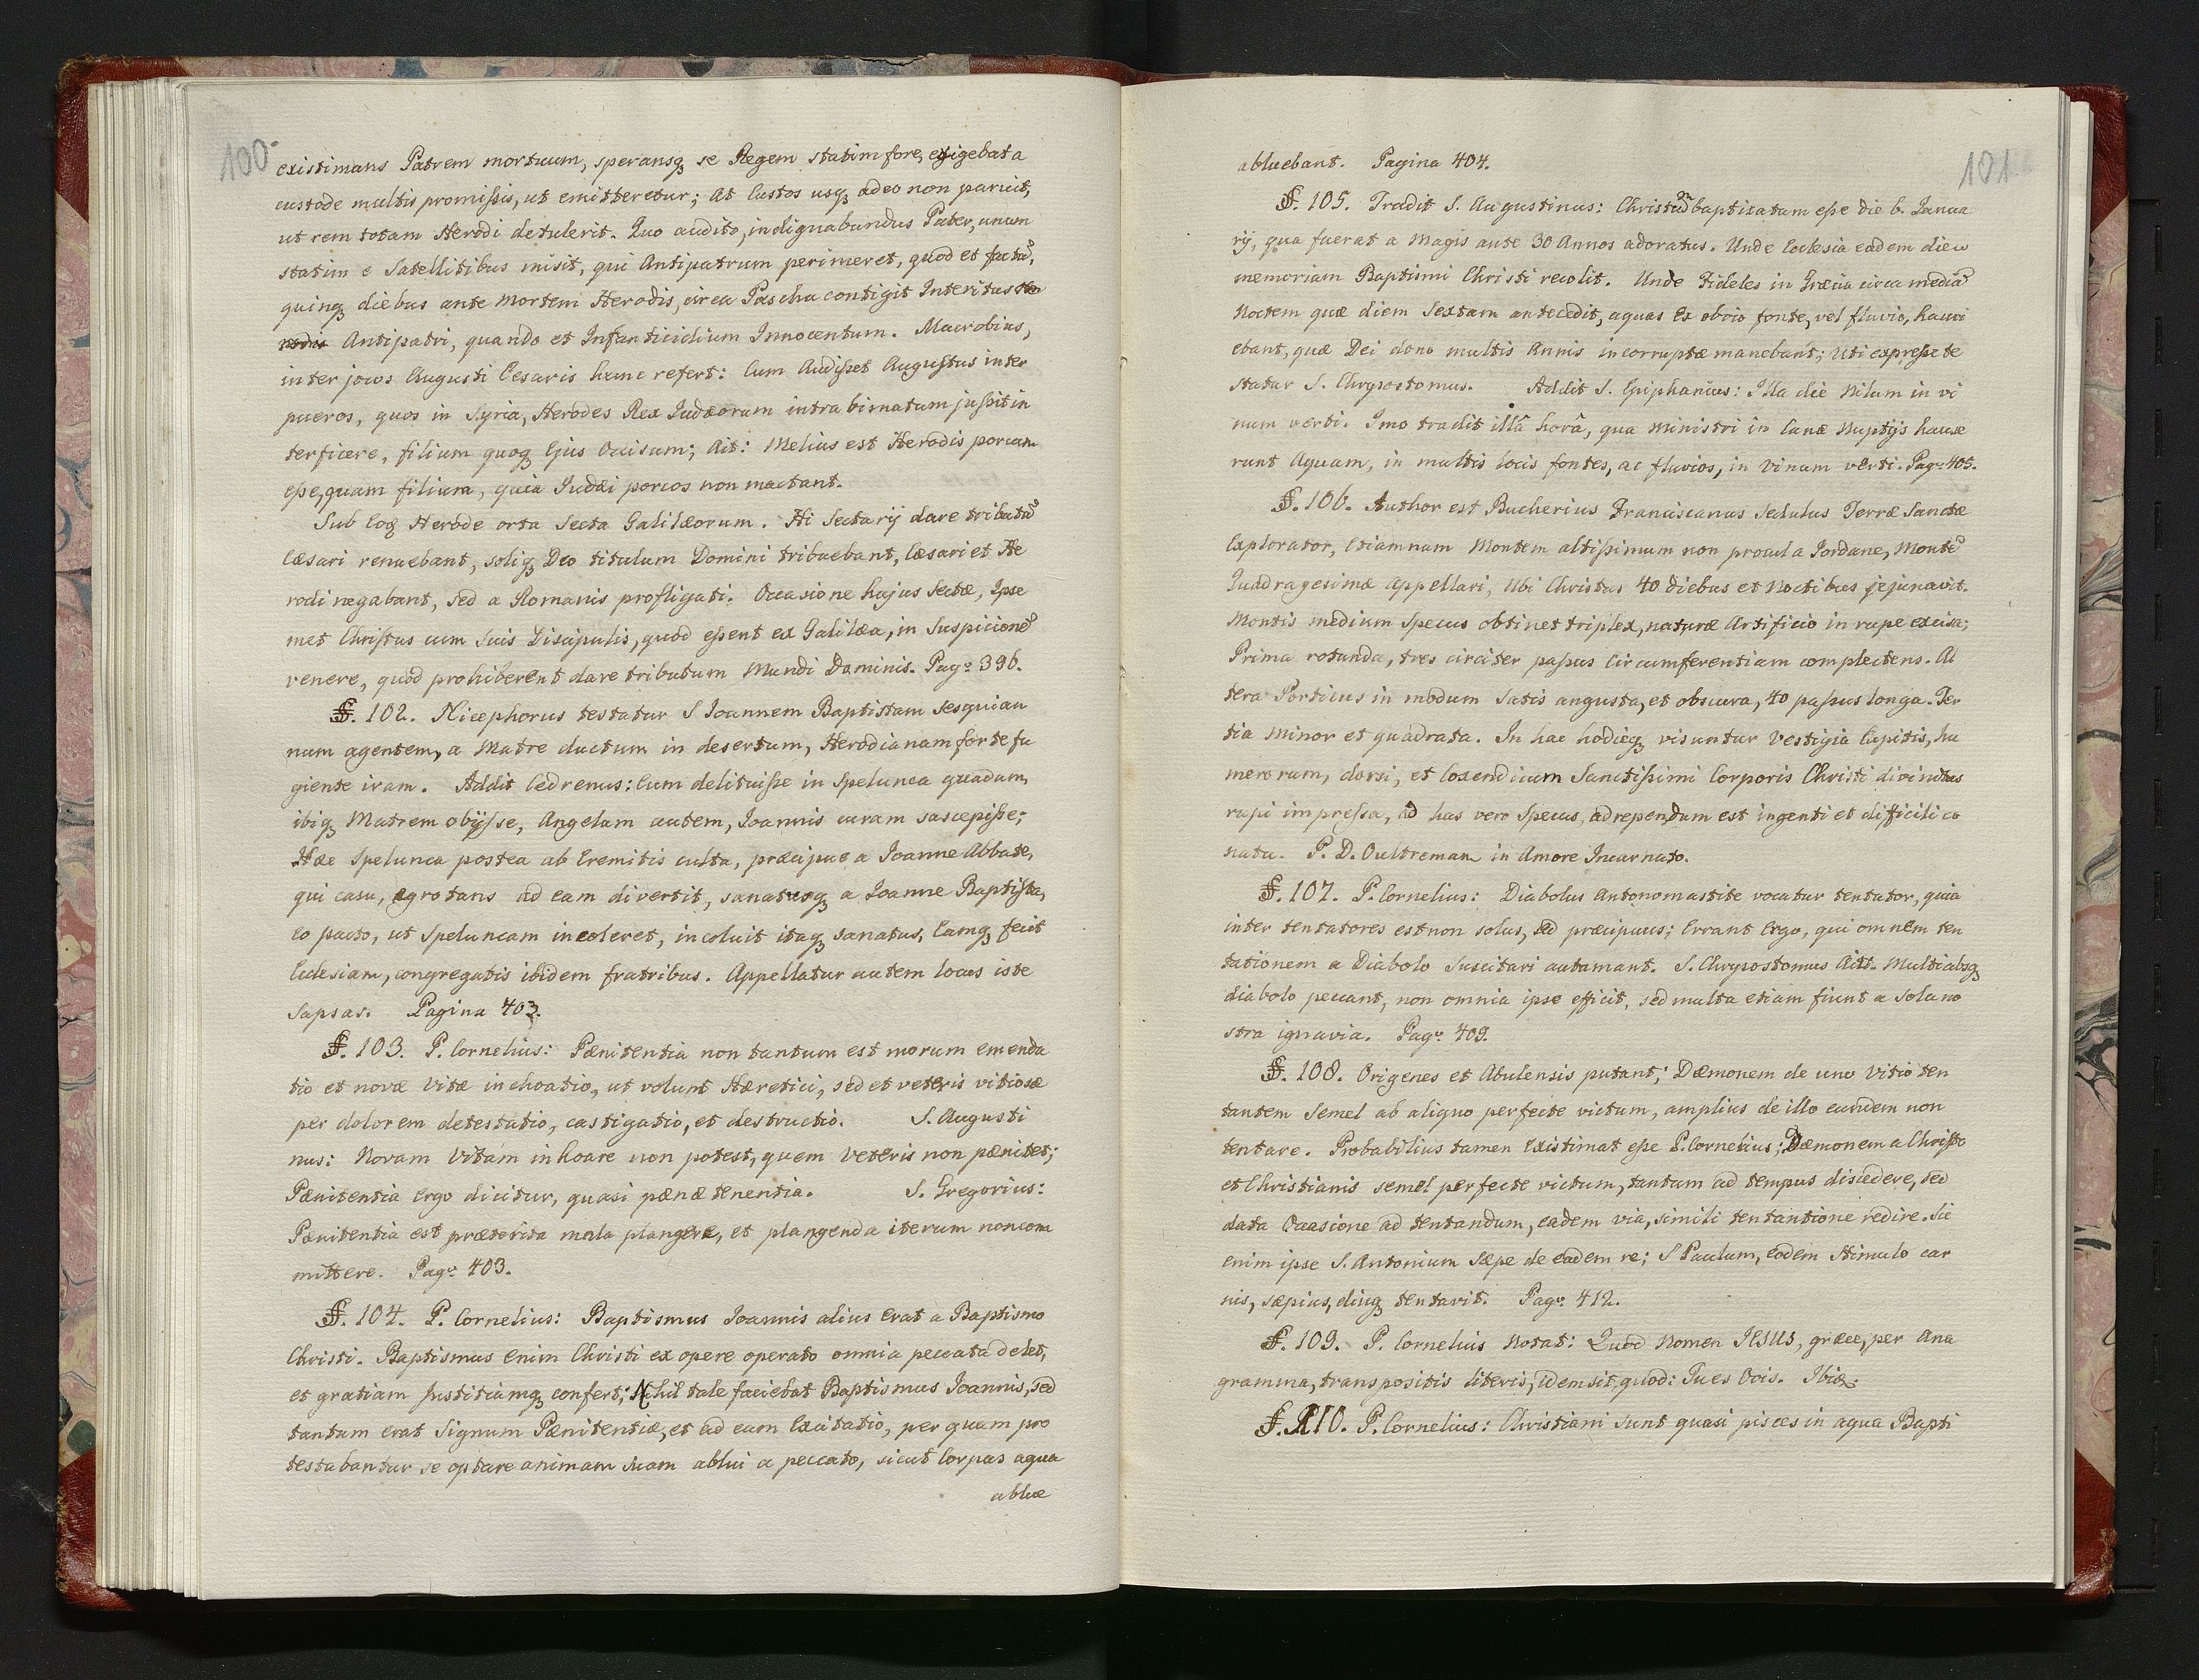 100
existimans Patrem mortuum, speransq se Regem statim fore, exigebat a
custode multis promissis, ut emitteretur; At Custos usq adeo non paruit,
ut rem totam Herodi detulerit. Quo audito, indignabundus Pater, unum
statim e Satellitibus misit, qui Antipatrum perimeret, quod et factū,
quinq diebus ante mortem Herodis, circa Pascha contigit Interitus He
rodis Antipatri, quando et Infanticidium Innocentum. Macrobius,
inter jocos Augusti Cesaris hunc refert: Cum Audisset Augustus inter
pueros, quos in Syria, Herodes Rex Iudæorum intra bimatum jussit in
terficere, filium quoq Ejus Occisum; Ait: Melius est Herodis porcum
esse, quam filium, quia Iudæi porcos non mactant.
Sub Eoq Herode orta Secta Galilæorum. Hi Sectarij dare tributū
Cæsari renuebant, soliq Deo titulum Domini tribuebant, Cæsari et He
rodi negabant, sed a Romanis profligati. Occasione hujus Sectæ, Ipse
met Christus cum Suis Discipulis, quod essent ex Galilæa, in Suspicionē
venere, quod prohiberent dare tributum Mundi Dominis. Pagᵃ 396.
§. 102. Nicephorus testatur S Ioannem Baptistam Sesquian
num agentem, a Matre ductum in desertum, Herodianam forte fu
giente iram. Addit Cedrenus: Eum delituisse in Spelunca quadam,
ibiq Matrem obijsse, Angelum autem, Ioannis curam suscepisse;
Hæc Spelunca postea ab Eremitis culta, præcipue a Ioanne Abbate,
qui casu, ægrotans ad eam divertit, sanatusq a Ioanne Baptista,
eo pacto, ut Speluncam incoleret, incoluit itaq sanatus, Eamq fecit
Ecclesiam, congregatis ibidem fratribus. Appellatur autem locus iste
Sapsas. Pagina 403.
§. 103. P. Cornelius: Pænitentia non tantum est morum emenda
tio et novæ Vitæ inchoatio, ut volunt Hæretici, sed et veteris vitiosæ
per dolorem detestatio, castigatio, et destructio. S. Augusti
nus: Novam Vitam inhoare non potest, quem Veteris non pænitet;
Pænitentia Ergo dicitur, quasi pænæ tenentia. S. Gregorius:
Pænitentia est præterita mala plangere, et plangenda iterum non com
mittere. Pagᵃ 403.
§. 104. P. Cornelius: Baptismus Ioannis alius Erat a Baptismo
Christi. Baptismus Enim Christi ex opere operato omnia peccata delet,
et gratiam Iustitiamq confert; Nihil tale faciebat Baptismus Ioannis, sed
tantum erat Signum Pænitentiæ, et ad eam Excitatio, per quam pro
testabantur se optare animam suam ablui a peccato, sicut Corpus aqua
ablue
101
abluebant. Pagina 404.
§. 105. Tradit S. Augustinus: Christum baptizatum esse die 6. Ianua
rij, qua fuerat a Magis ante 30 Annos adoratus. Unde Ecclesia eadem die
memoriam Baptismi Christi recolit. Unde Fideles in Græcia circa mediā
Noctem quæ diem Sextam antecedit, aquas Ex obvio fonte, vel fluvio, hauri
ebant, quæ Dei dono multis Annis incorruptæ manebant; uti expresse te
statur S. Chrysostomus. Addit S. Epiphanius: Illa die Nilum in vi
num verti. Imo tradit illâ horâ, qua Ministri in Canæ Nuptijs hause
runt Aquam, in multis locis fontes, ac fluvios, in Vinum verti. Pagᵃ 405.
§. 106. Author est Bucherius Franciscanus Sedulus Terræ Sanctæ
Explorator, Etiamnum Montem altissimum non procul a Iordane, Montē
Quadragesimæ Appellari, Ubi Christus 40 diebus et Noctibus jejunavit.
Montis medium Specus obtinet triplex, naturæ Artificio in rupe excisa;
Prima rotunda, tres circiter passus Circumferentiam complectens. Al
tera Porticus in modum Satis angusta, et obscura, 40 passus longa. Ter
tia Minor et quadrata. In hac hodieq visuntur Vestigia Capitis, hu
merorum, dorsi, et Coxendicum Sanctissimi Corporis Christi divinitus
rupi impressa, ad has vero Specus, adrependum est ingenti et difficili co
natu. P. D. Oultreman in Amore Incarnato.
§. 107. P. Cornelius: Diabolus Antonomastite vocatur tentator, quia
inter tentatores est non solus, sed præcipuus; Errant Ergo, qui omnem ten
tationem a Diabolo Suscitari autamant. S. Chrysostomus Ait. Multi absq
diabolo peccant, non omnia ipse efficit, sed multa etiam fiunt a sola no
stra ignavia. Pagᵃ 409.
§. 108. Origenes et Abulensis putant; Dæmonem de uno Vitio ten
tantem Semel ab aliquo perfecte victum, amplius de illo eundem non
tentare. Probabilius tamen Existimat esse P. Cornelius; Dæmonem a Christo
et Christianis semel perfecte victum, tantum ad tempus discedere, sed
data Occasione ad tentandum, eadem via, simili tentantione redire. Sic
enim ipse S. Antonium Sæpe de eadem re; S Paulum, Eodem Stimulo car
nis, sæpius, diuq tentavit. Pagᵃ 412.
§. 109. P. Cornelius Notat: Quod Nomen IESUS, græce, per Ana
gramma, transpositis literis, idem sit, quod: Tu es Ovis. Ibid:
§. 110. P. Cornelius: Christiani Sunt quasi pisces in aqua Bapti